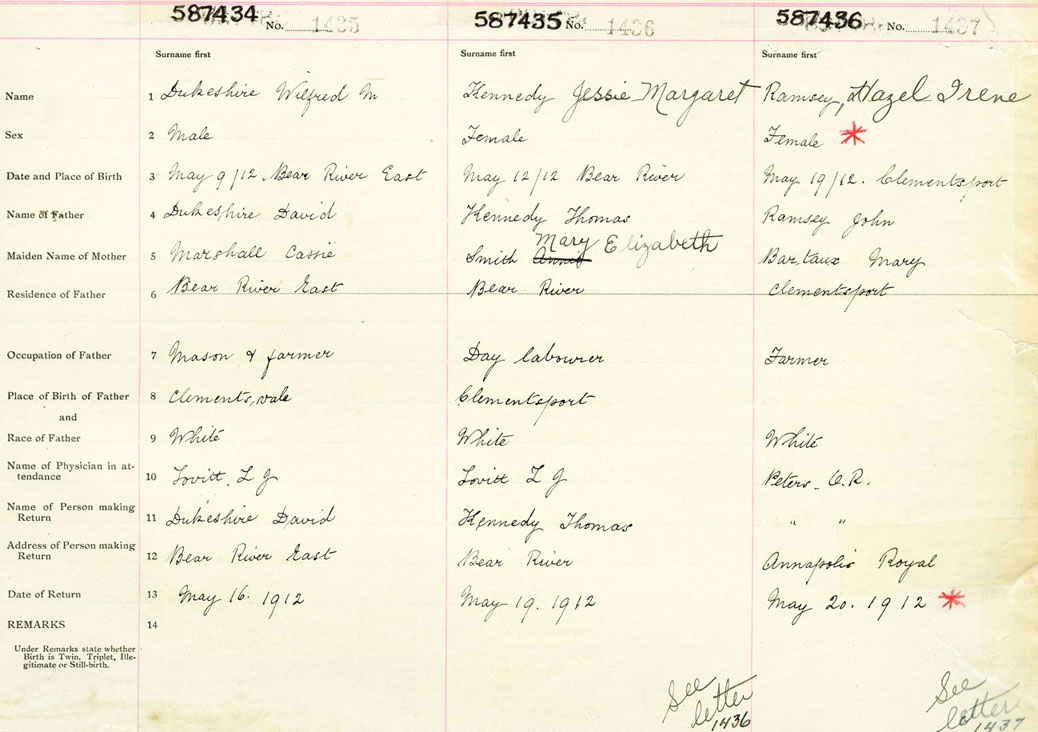 587434 No. 1435 587435 No. 1436 587436 No. 1437
Surname first Surname first Surname first
Name 1 Dukeshire Wilfred M Kennedy Jessie Margaret Ramsey, Hazel Irene
Sex 2 Male Female Female *
Date and Place of Birth 3 May 9/12. Bear River East May 12/12 Bear River May 19/12. Clementsport
Name of Father 4 Dukeshire David Kennedy Thomas Ramsey John
Mary Elizabeth
Maiden Name of Mother 5 Marshall Cassie Smith Bartaux Mary
Residence of Father 6 Bear River East Bear River Clementsport
Occupation of Father 7 Mason & farmer Day labourer Farmer
Place of Birth of Father 8 Clementsvale Clementsport
and
Race of Father 9 White White White
Name of Physician in at-
tendance 10 Lovitt. L J Lovitt L J Peters - O.R.
Name of Person making
Return 11 Dukeshire David Kennedy Thomas " "
Address of Person making
Return 12 Bear River East Bear River Annapolis Royal
Date of Return 13 May 16. 1912 May 19. 1912 May 20. 1912 *
REMARKS 14
Under Remarks state whether
Birth is Twin, Triplet, Ille-
gitimate or Still-birth.
See See
letter letter
1436 1437